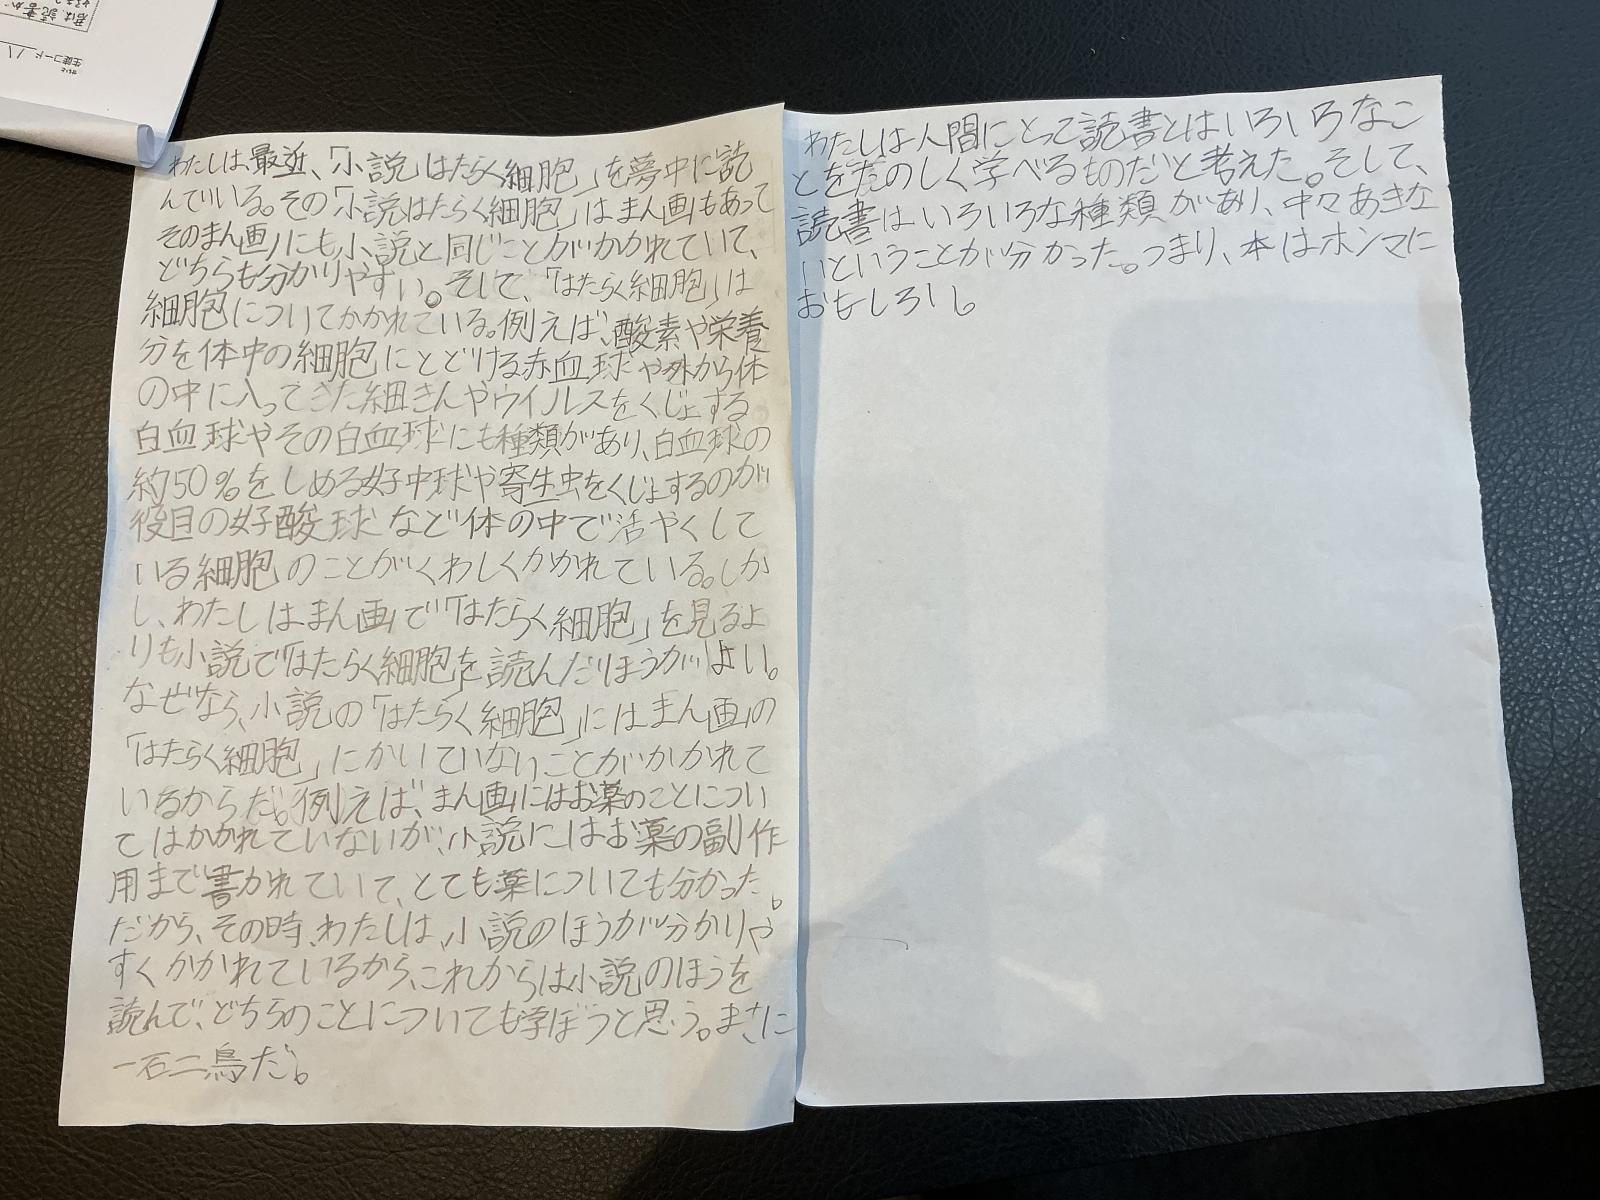 君は、読書が
生徒コード
わたしは、最近、「小説 はたらく細胞」を夢中に読
んでいる。その「小説はたらく細胞」はまん画もあって
そのまん画にも小説と同じことがかかれていて、
どちらも分かりやすい。そして、「はたらく細胞」は
細胞についてかかれている。例えば、酸素や栄養
分を体中の細胞にとどける赤血球や外から体
の中に入ってきた細きんやウイルスをくじょする
白血球やその白血球にも種類があり、白血球の
約50%をしめる好中球や寄生虫をくじょするのが
役目の好酸球など体の中で活やくして
いる細胞のことがくわしくかかれている。しか
し、わたしはまん画で「はたらく細胞」を見るよ
りも小説で「はたらく細胞」を読んだほうがよい。
なぜなら、小説の「はたらく細胞」にはまん画の
「はたらく細胞」にかいていないことがかかれて
いるからだ。例えば、まん画にはお薬のことについ
てはかかれていないが、小説にはお薬の副作
用まで書かれていて、とても薬についても分かった。
だから、その時、わたしは、小説のほうが分かりや
すくかかれているから、これからは小説のほうを
読んで、どちらのことについても学ぼうと思う。まさに
一石二鳥だ。
わたしは人間にとって読書とはいろいろなこ
とをたのしく学べるものだと考えた。そして、
読書はいろいろな種類があり、中々あきな
いということが分かった。つまり、本はホンマに
おもしろい。